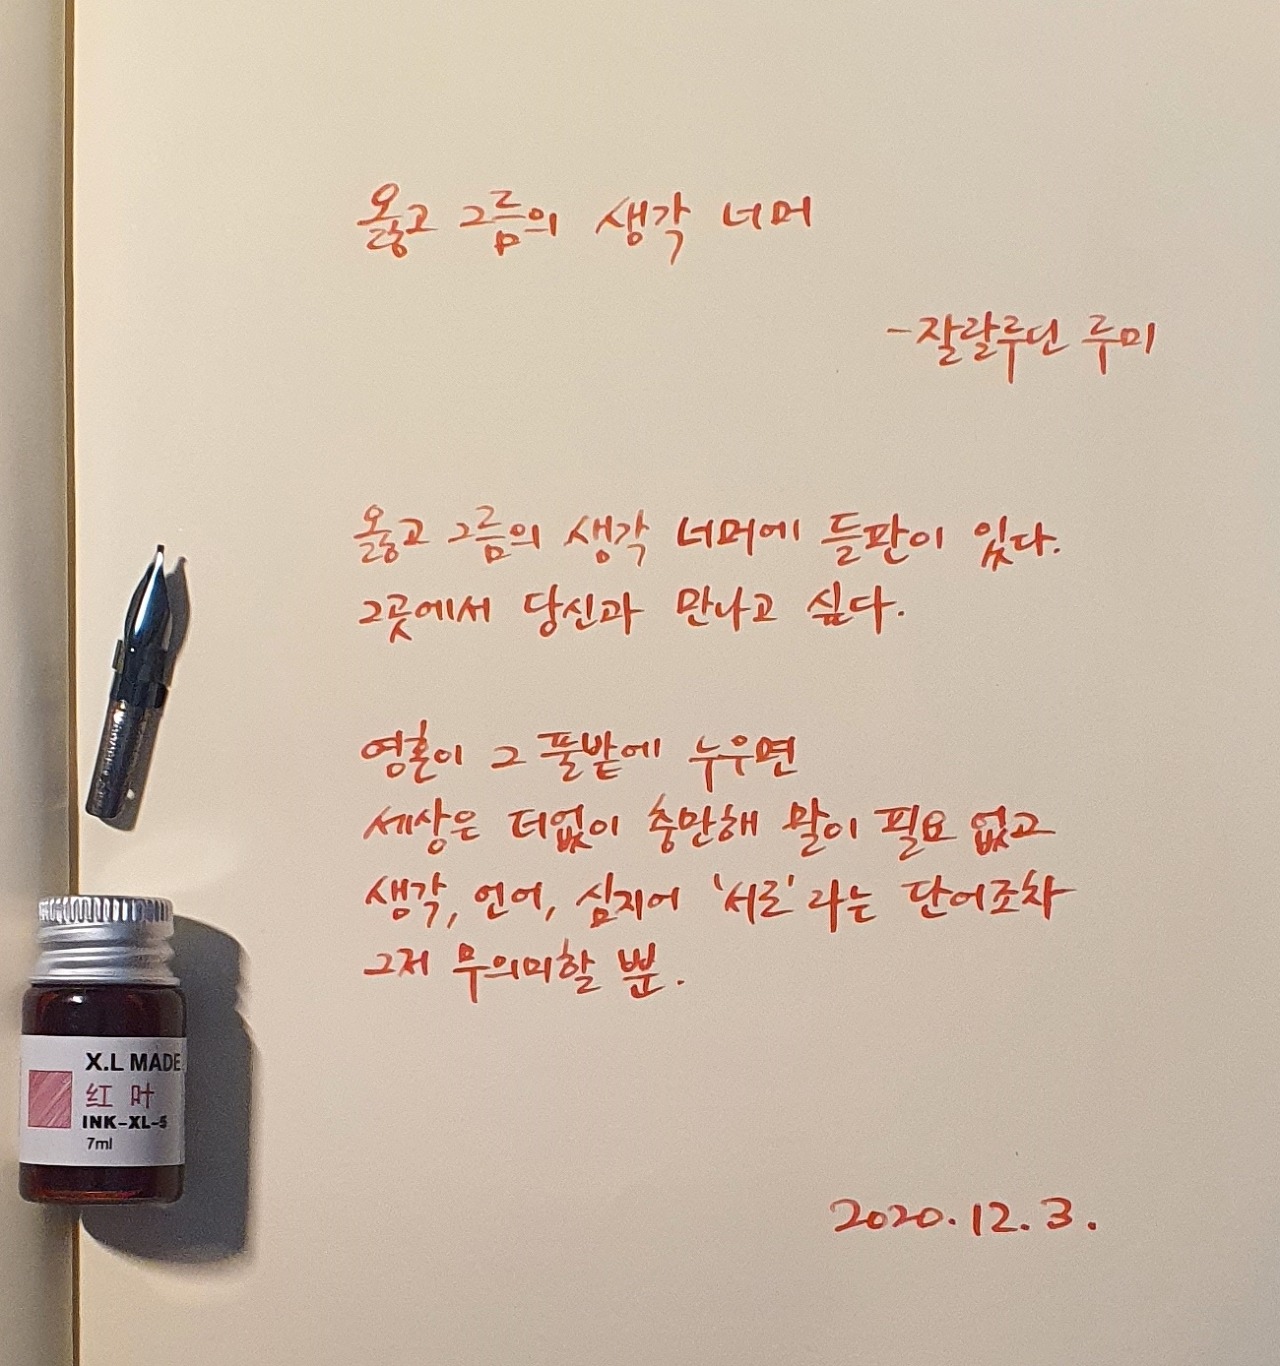 옳고 그름의 생각 너머
-잘랄루딘 루미
옳고 그름의 생각 너머에 들판이 있다.
그곳에서 당신과 만나고 싶다.
영혼이 그 풀밭에 누우면
세상은 더없이 충만해 말이 필요 없고
생각, 언어, 심지어 '서로'라는 단어조차
그저 무의미할 뿐.
X.L MADE
红 叶
INK-XL-5
7ml
2020.12.3.